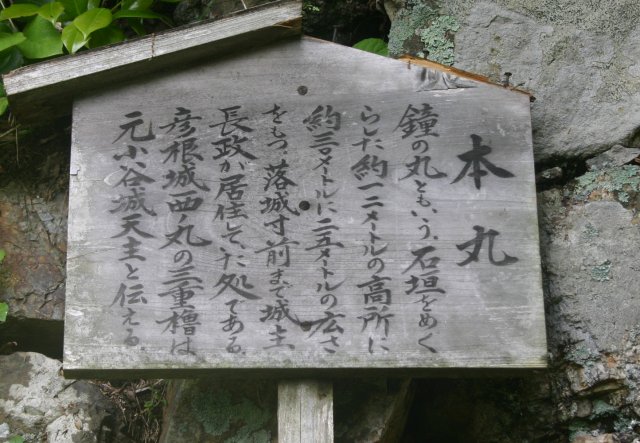 本丸
鐘の丸ともいう。石垣をめぐ
らした約一二メートルの高所に
約三〇メートルに、二五メートルの広さ
をもつ、落城寸前まで城主、
長政が居住していた処である。
彦根城西ノ丸の三重櫓は
元小谷城天主と伝える。